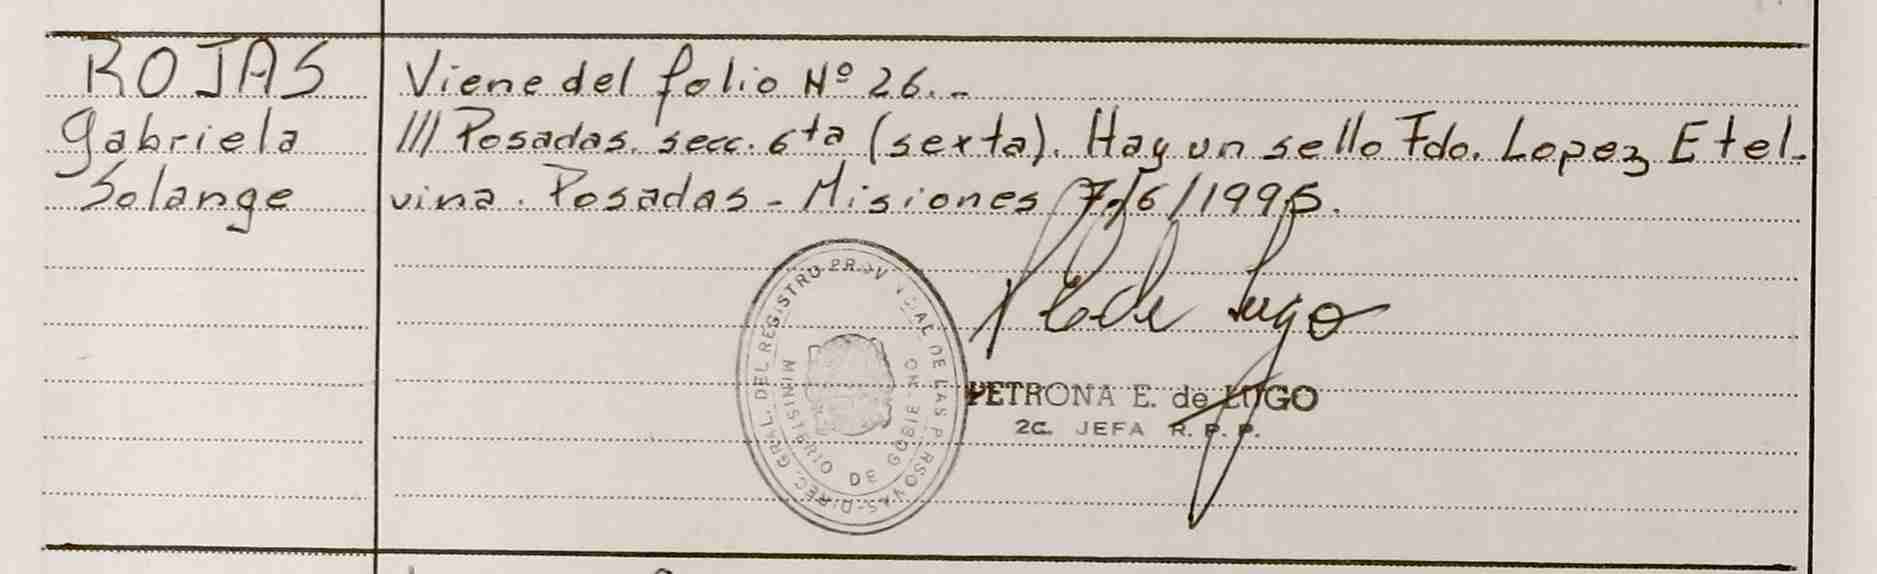 ROJAS
Gabriela
Solange
Viene del folio Nº 26.-
/// Posadas. secc. 6ta (sexta). Hay un sello Fdo. Lopez Etel-
vina. Posadas - Misiones 7/6/1995.
DIREC. GRAL. DEL REGISTRO PROVINCIAL DE LAS PERSONAS
MINISTERIO DE GOBIERNO
P E de Lugo
PETRONA E. de LUGO
2a. JEFA R. P. P.